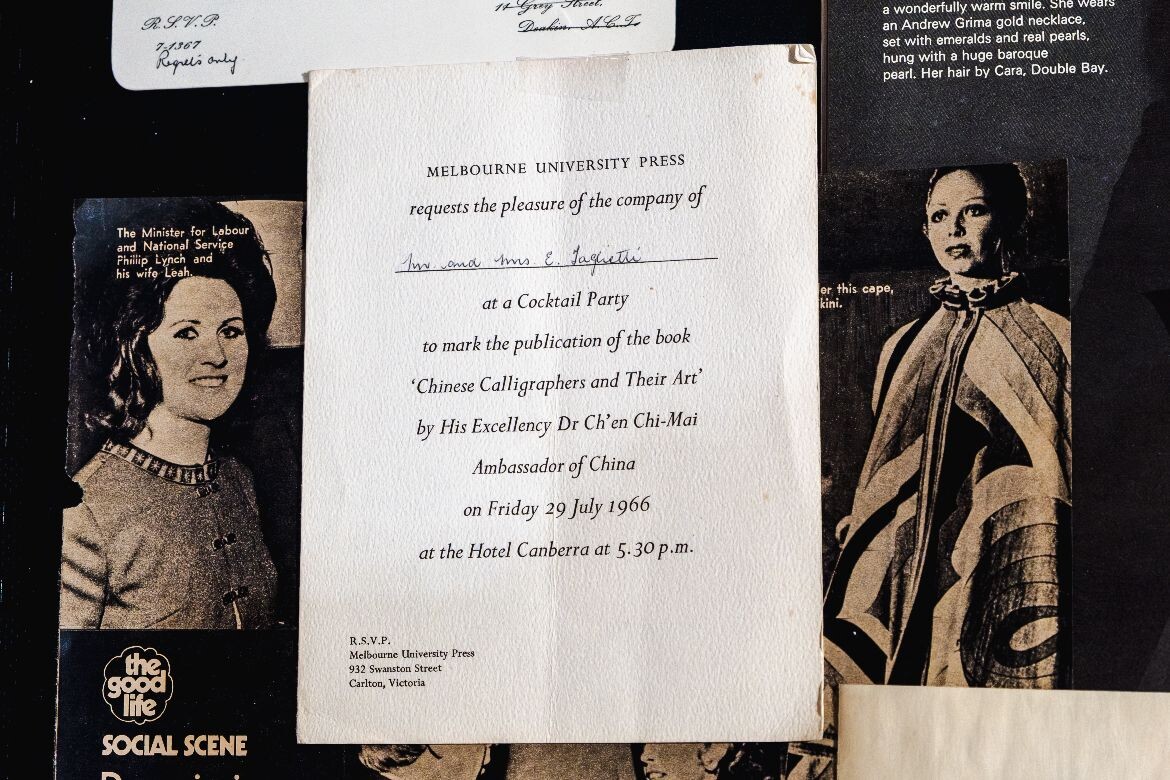 R.S.V.P.
7-1367
Regrets only
14 Grey Street,
Deakin. A.C.T.
a wonderfully warm smile. She wears
an Andrew Grima gold necklace,
set with emeralds and real pearls,
hung with a huge baroque
pearl. Her hair by Cara, Double Bay.
The Minister for Labour
and National Service
Phillip Lynch and
his wife Leah.
MELBOURNE UNIVERSITY PRESS
requests the pleasure of the company of
Mr. and Mrs. E. Taglietti
at a Cocktail Party
to mark the publication of the book
‘Chinese Calligraphers and Their Art’
by His Excellency Dr Ch’en Chi-Mai
Ambassador of China
on Friday 29 July 1966
at the Hotel Canberra at 5.30 p.m.
R.S.V.P.
Melbourne University Press
932 Swanston Street
Carlton, Victoria
er this cape,
kini.
the
good
life
SOCIAL SCENE